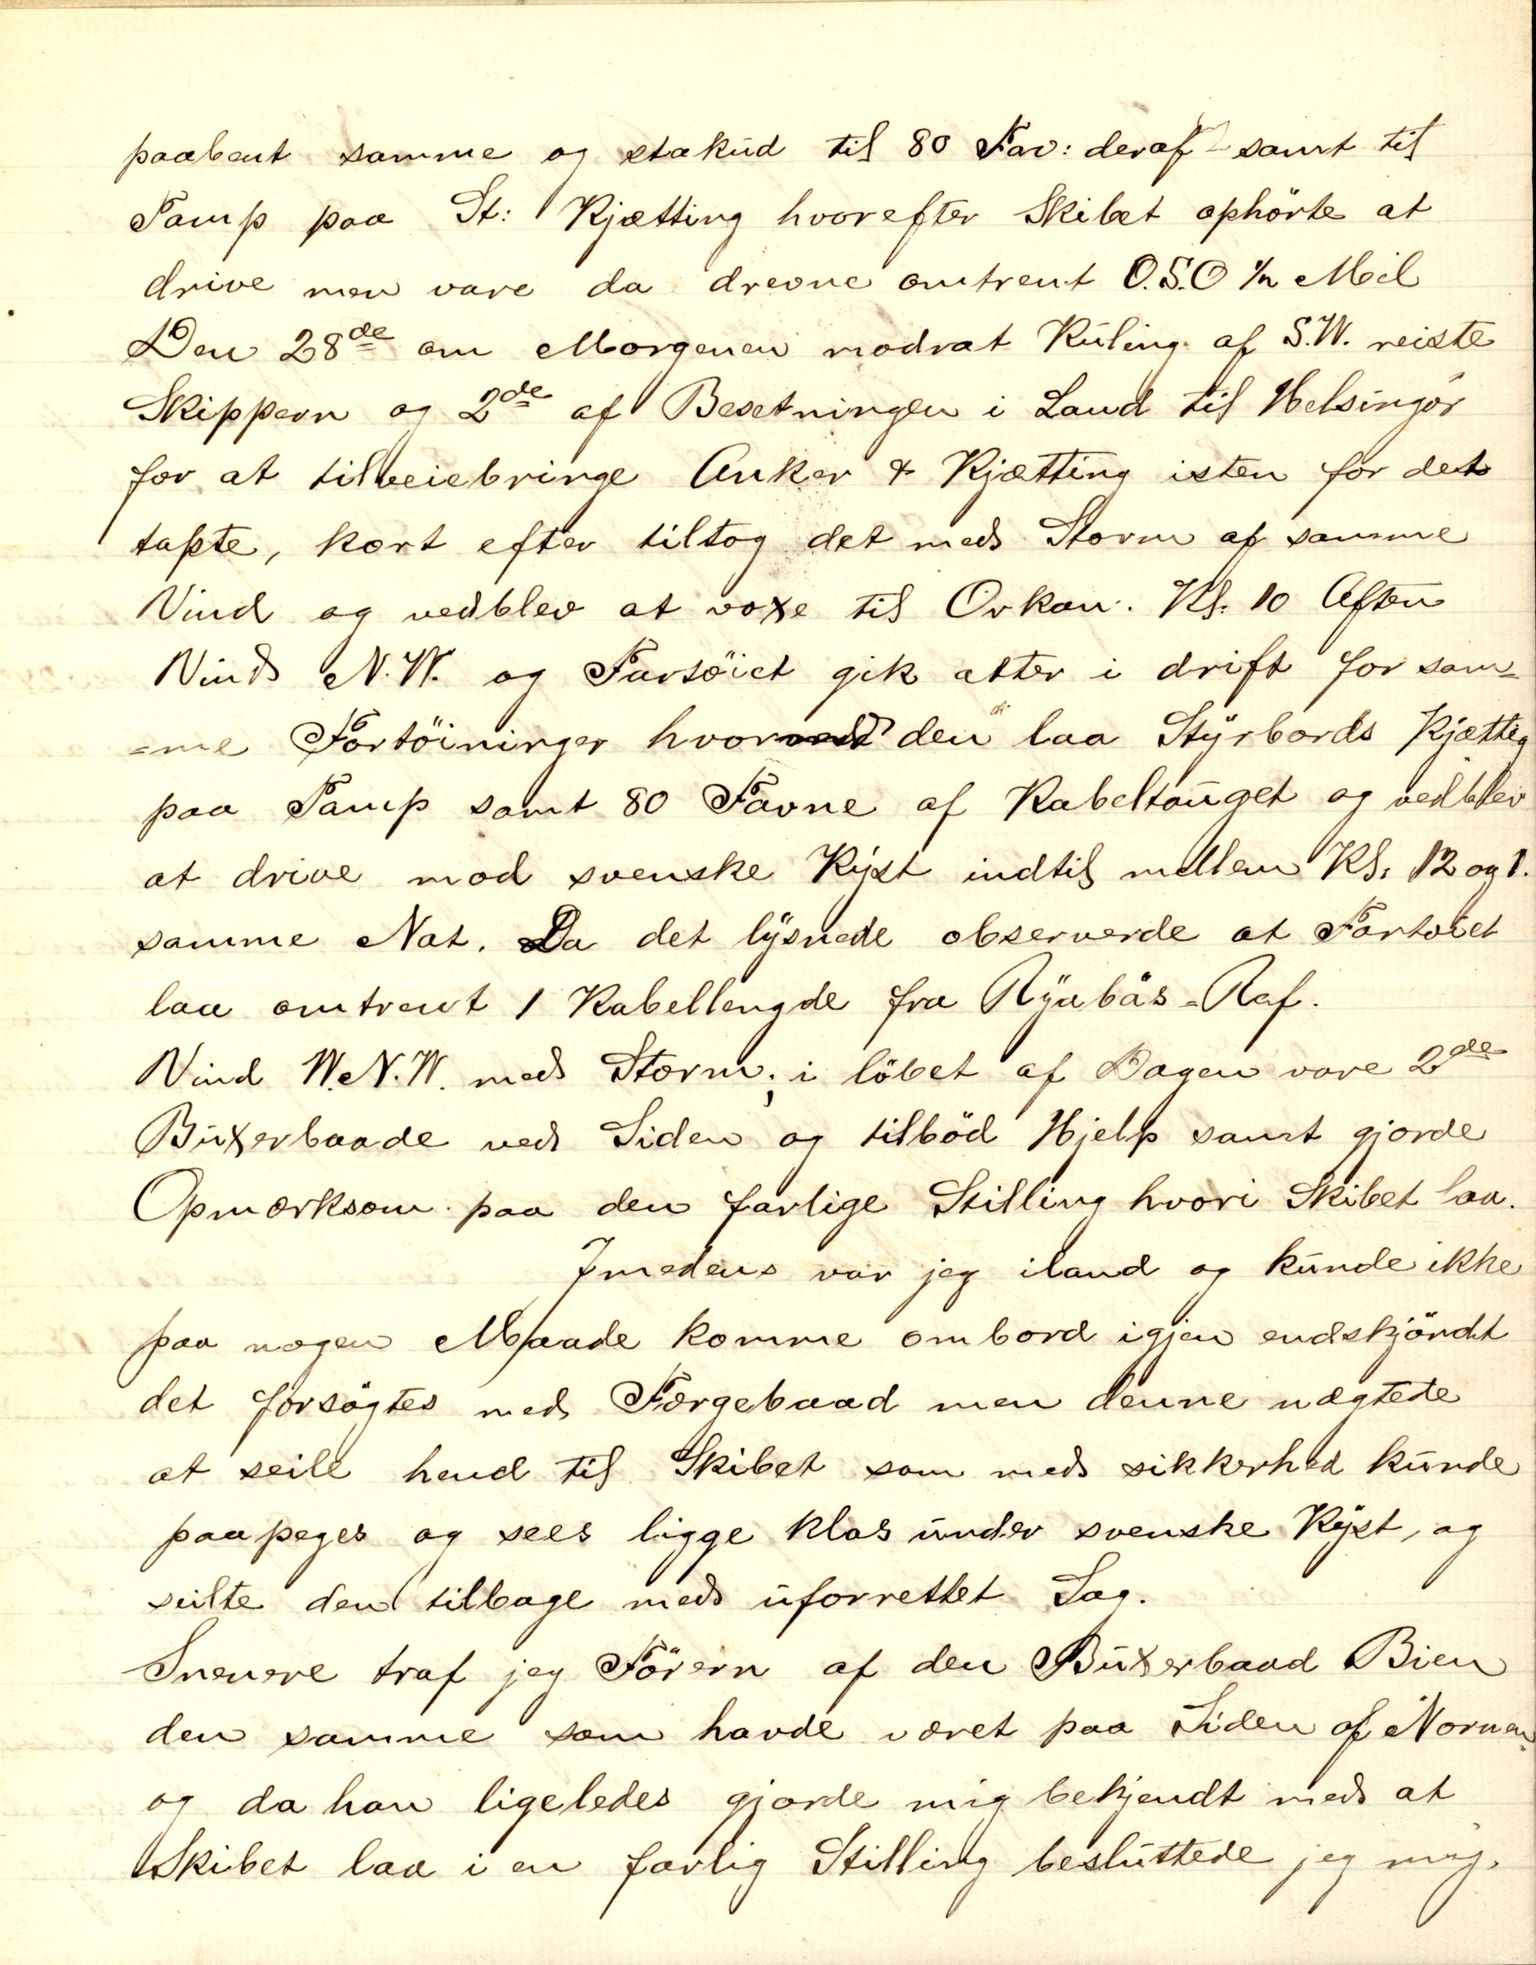 paabent samme og stakud til 80 Fav: deraf samt til
Tamp paa St: Kjætting hvorefter Skibet ophörte at
drive men vare da drevne omtrent O.S.O 1/2 Mil
Den 28de om Morgenen modrat Kuling af S.W. reiste
Skippern og 2de af Besetningen i Land til Helsingör
for at tilveiebringe Anker & Kjætting isten for det
tapte, kort efter tiltog det med Storm af samme
Vind og vedblev at voxe til Orkan. Kl. 10 Aften
Vind N.W. og Fartöiet gik atter i drift for sam=
=me Fortöininger hvor den laa Styrbords Kjættig
paa Tamp samt 80 Favne af Kabeltouget og vedblev
at drive mod svenske Kyst indtil mellem Kl. 12 og 1.
samme Nat. Da det lysnede observerde at Fartoiet
laa omtrent 1 Kabellengde fra Ryabås-Raf.
Vind W.N.W. med Storm; i löbet af Dagen vare 2de
Buxerbaade ved Siden og tilböd Hjelp samt gjorde
Opmærksom paa den farlige Stilling hvori Skibet laa.
Imedens var jeg iland og kunde ikke
paa nogen Maade komme ombord igjen endskjöndt
det forsögtes med Færgebaad men denne nægtede
at seile hend til Skibet som med sikkerhed kunde
paapeges og sees ligge klos under svenske Kyst, og
seilte den tilbage med uforrettet Sag.
Snenere traf jeg Förern af den Buxerbaad Bien
den samme som havde været paa Siden af Nornen
og da han ligeledes gjorde mig bekjendt med at
Skibet laa i en farlig Stilling besluttede jeg mig.